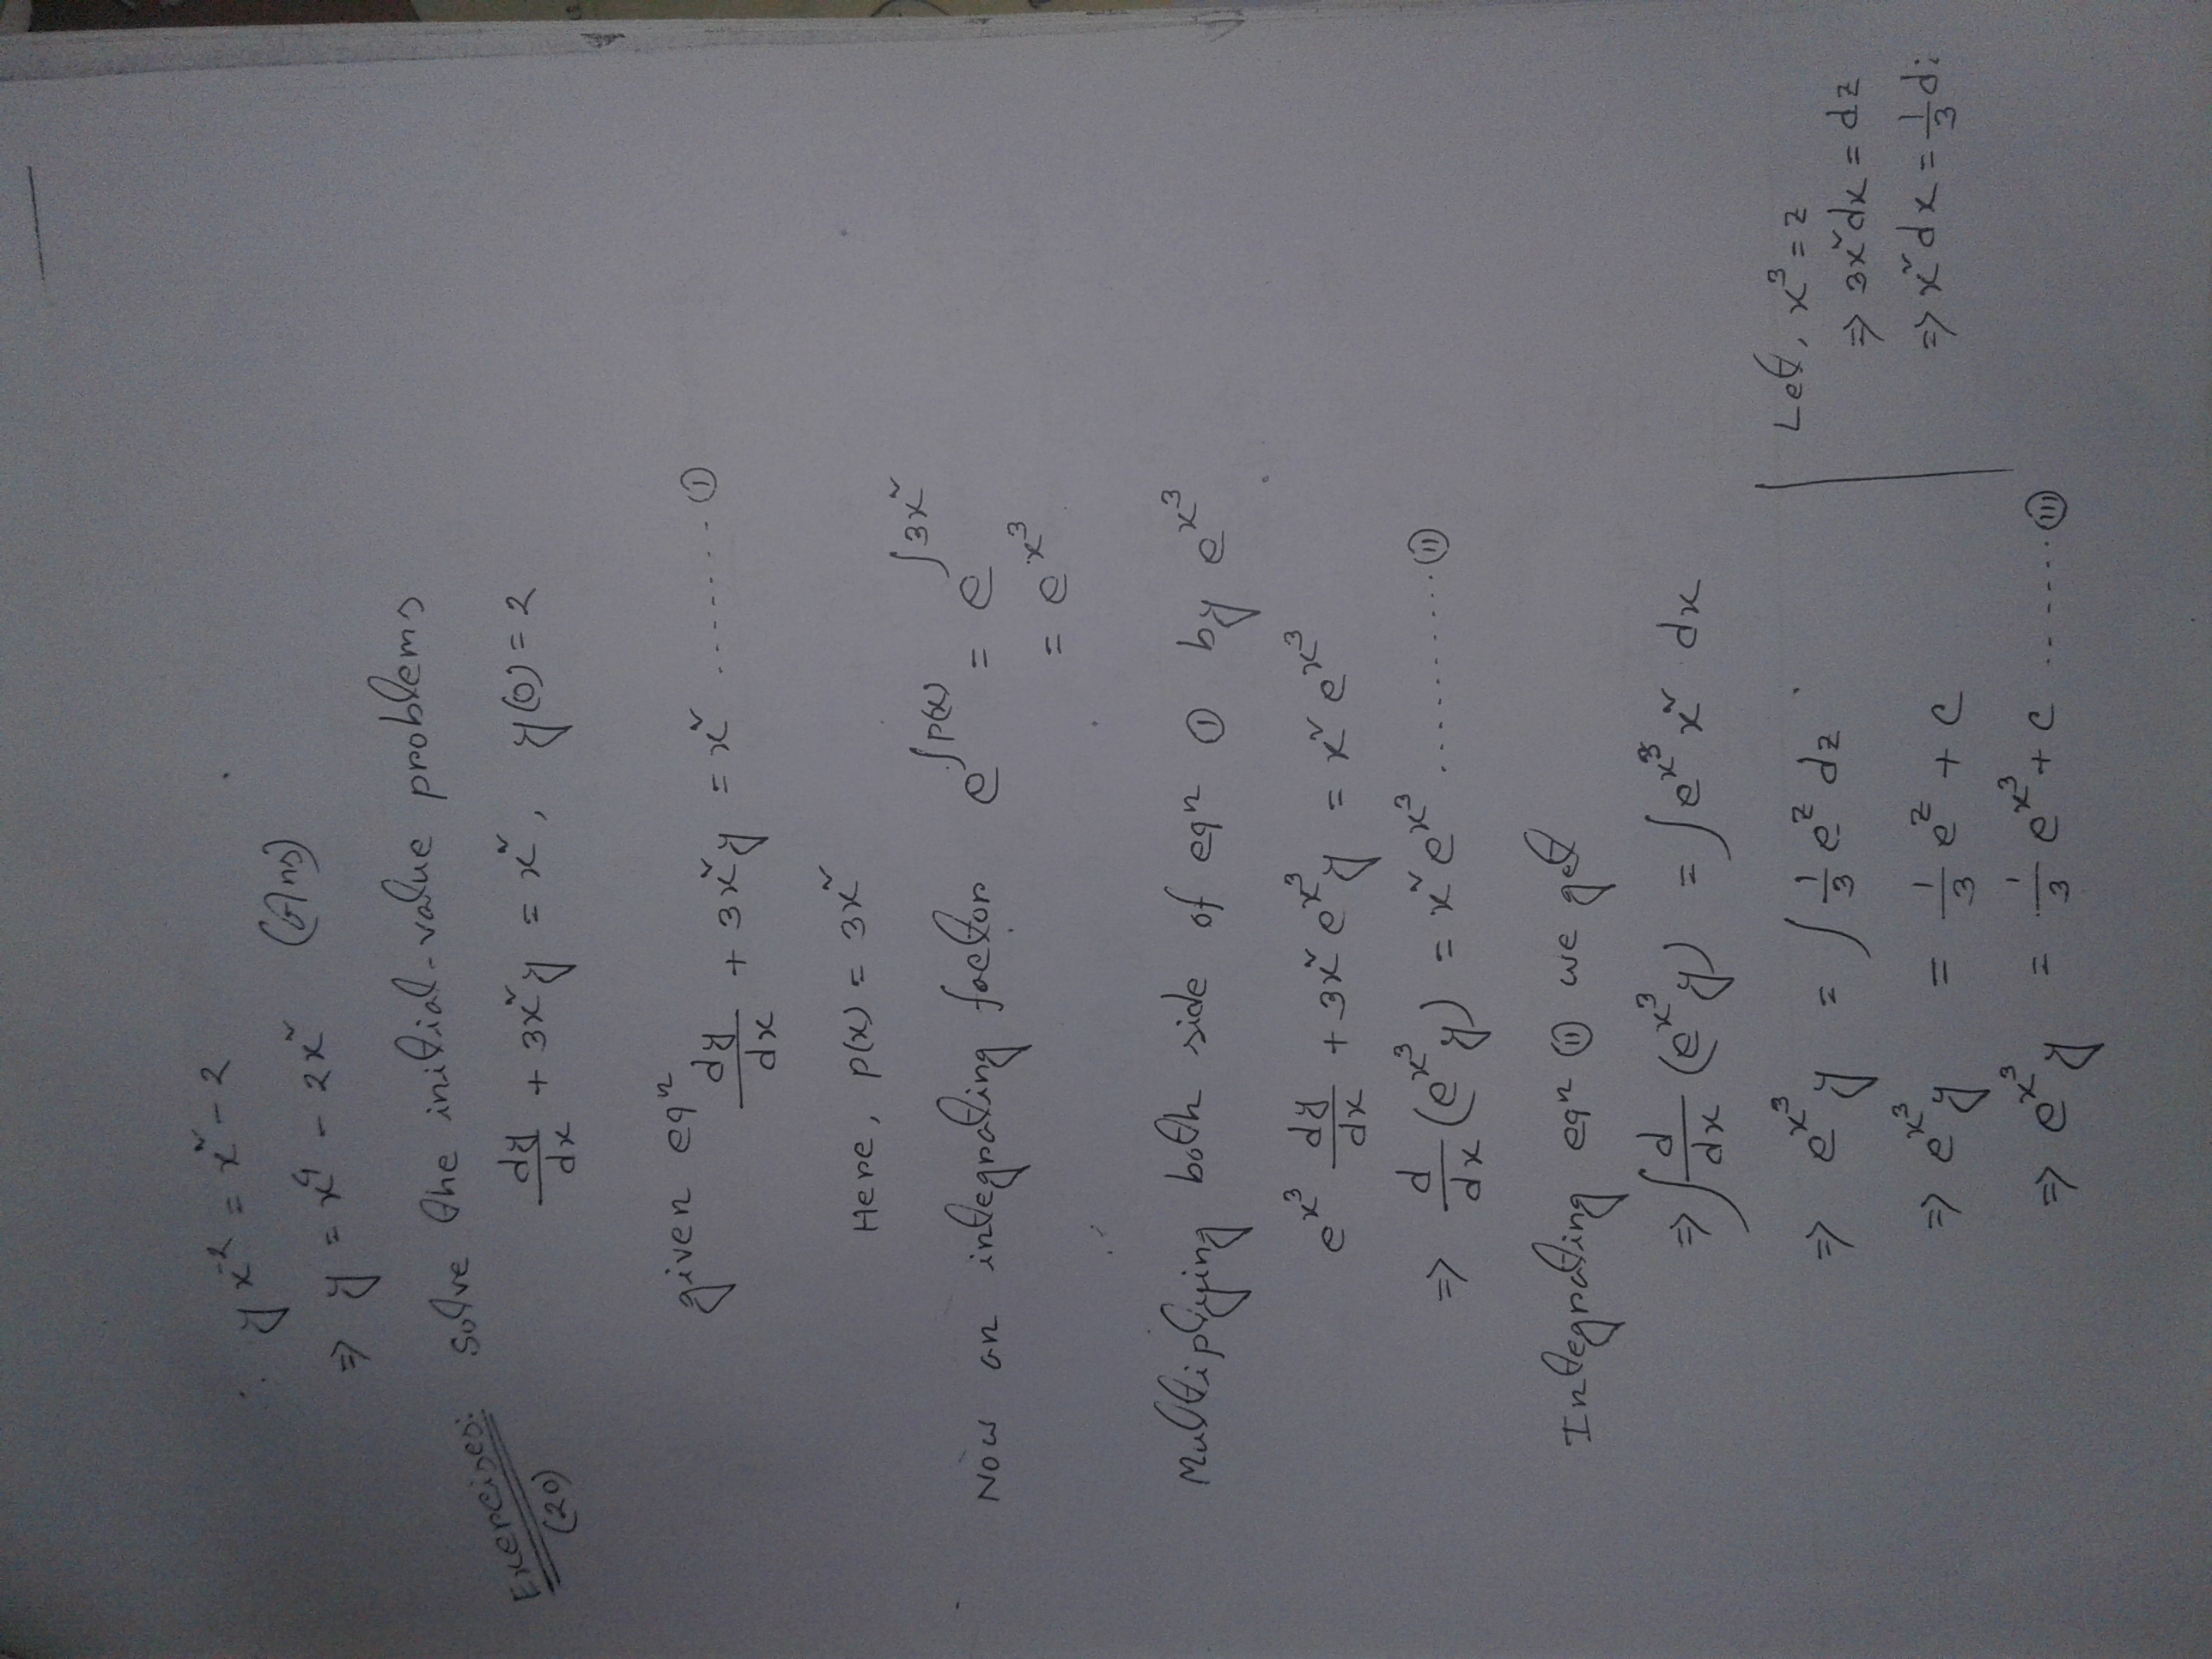 ∴ yx⁻² = x² - 2
⇒ y = x⁴ - 2x² (Ans)
Exercises: Solve the initial-value problems
(20) dy/dx + 3x²y = x², y(0) = 2
given eqⁿ
dy/dx + 3x²y = x² ........ ①
Here, p(x) = 3x²
Now an integrating factor e^∫p(x) = e^∫3x²
= e^x³
Multiplying both side of eqⁿ ① by e^x³
e^x³ dy/dx + 3x² e^x³ y = x² e^x³
⇒ d/dx (e^x³ y) = x² e^x³ ........... ⑪
Integrating eqⁿ ⑪ we get
⇒ ∫ d/dx (e^x³ y) = ∫ e^x³ x² dx
⇒ e^x³ y = ∫ 1/3 e^z dz
⇒ e^x³ y = 1/3 e^z + c
⇒ e^x³ y = 1/3 e^x³ + c ....... (III)
Let, x³ = z
⇒ 3x² dx = dz
⇒ x² dx = 1/3 d